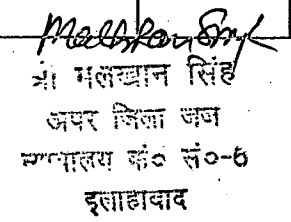 Malkhan Singh
श्री मलखान सिंह
अपर जिला जज
न्यायालय कं० सं०-6
इलाहाबाद